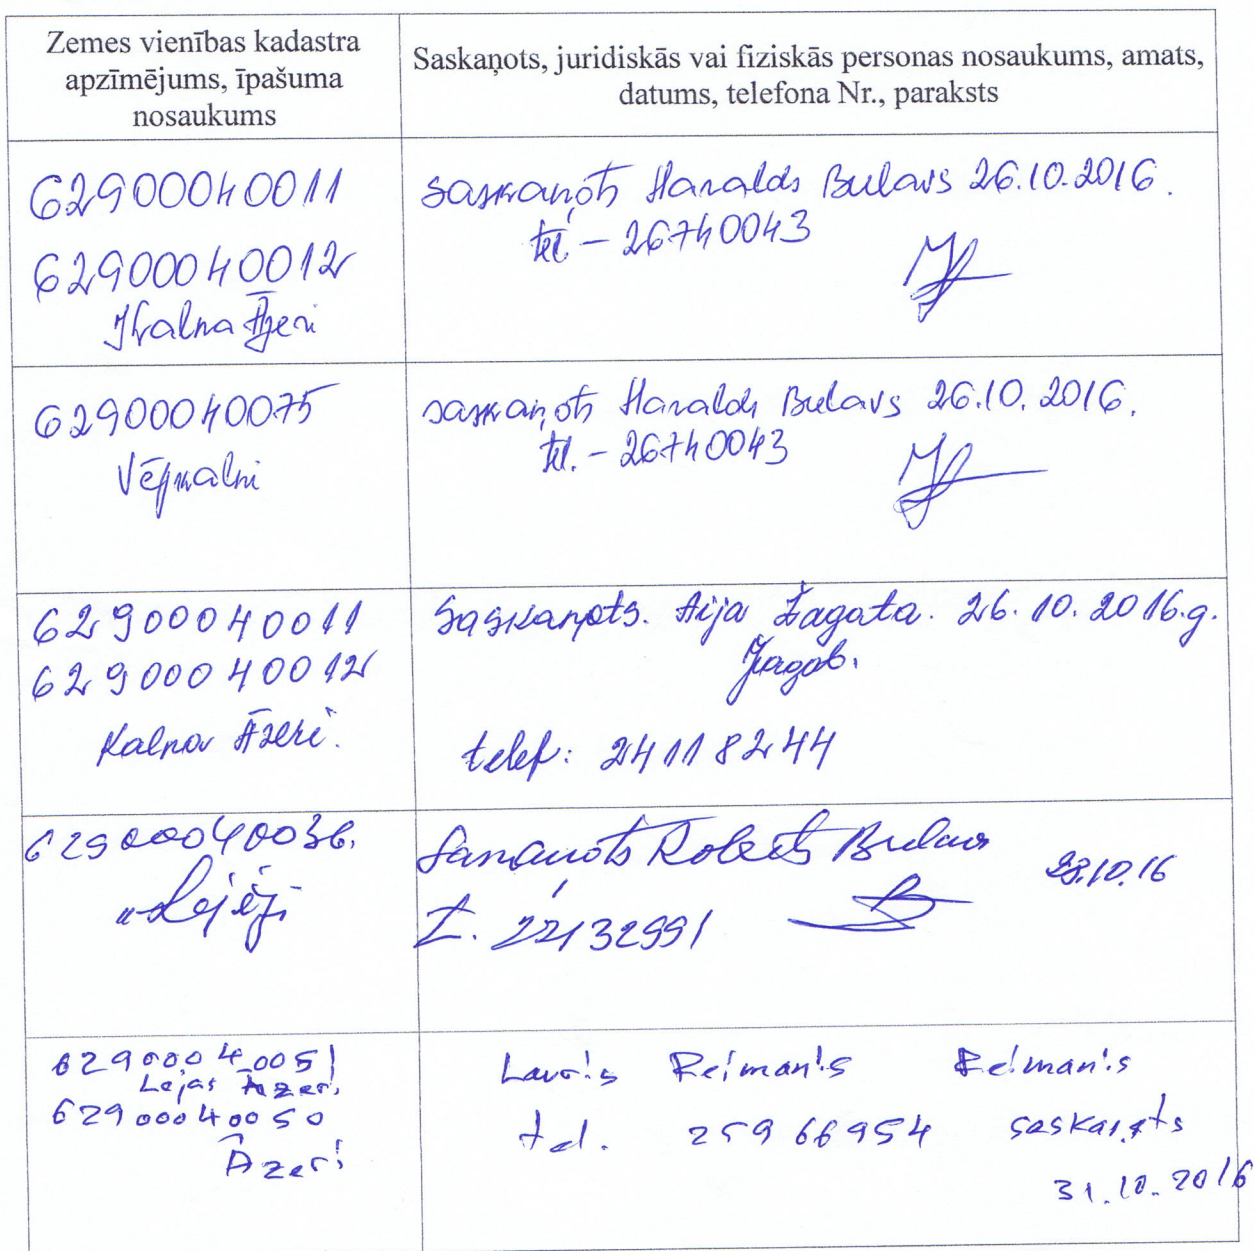 Zemes vienības kadastra
apzīmējums, īpašuma
nosaukums
Saskaņots, juridiskās vai fiziskās personas nosaukums, amats,
datums, telefona Nr., paraksts
62900040011
62900040012
Kalna Āzeri
saskaņots Haralds Bulavs 26.10.2016.
tel. - 26740043
62900040075
Vējkalni
saskaņots Haralds Bulavs 26.10.2016.
tel. - 26740043
62900040011
62900040012
Kalna Āzeri.
Saskaņots. Aija Žagata. 26.10.2016.g.
telef: 24118244
62900040036.
Saskaņots Roberts Bulavs
28.10.16
T. 22132991
62900040051
Lejas Āzeri
62900040050
Āzeri
Lauris Reimanis Reimanis
tel. 25966954 saskaņots
31.10.2016